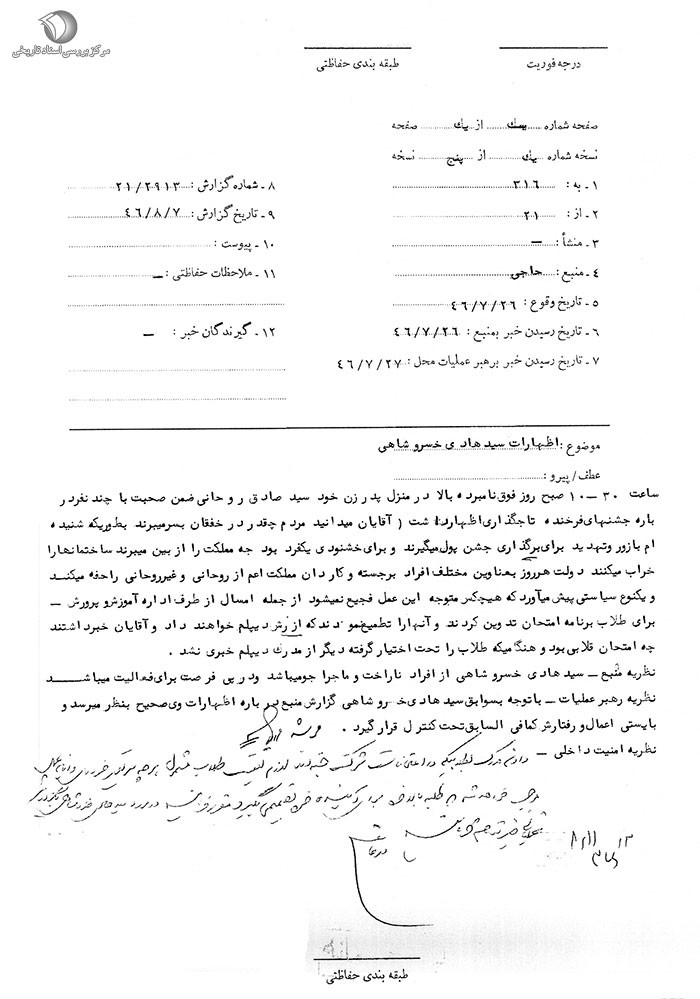 مرکز بررسی اسناد تاریخی
درجه فوریت
طبقه بندی حفاظتی
صفحه شماره یک از یک صفحه
نسخه شماره یک از پنج نسخه
۱ـ به : ۳۱۶
۲ـ از : ۲۱
۳ـ منشأ : ــ
۴ـ منبع : حاجی
۵ـ تاریخ وقوع : ۴۶/۷/۲۶
۶ـ تاریخ رسیدن خبر بمنبع : ۴۶/۷/۲۶
۷ـ تاریخ رسیدن خبر برهبر عملیات محل : ۴۶/۷/۲۷
۸ـ شماره گزارش : ۲۱/۲۹۱۳
۹ـ تاریخ گزارش : ۴۶/۸/۷
۱۰ـ پیوست :
۱۱ـ ملاحظات حفاظتی : ــ
۱۲ـ گیرندگان خبر : ــ
موضوع : اظهارات سید هادی خسروشاهی
عطف/ پیرو :
ساعت ۳۰ــ۱۰ صبح روز فوق نامبرده بالا در منزل پدر زن خود سید صادق روحانی ضمن صحبت با چند نفر در
باره جشنهای فرخنده تاجگذاری اظهار داشت ( آقایان میدانید مردم چقدر در خفقان بسر میبرند بطوریکه شنیده
ام با زور و تهدید برای برگذاری جشن پول میگیرند و برای خشنودی یکفرد بود جه مملکت را از بین میبرند ساختمانها را
خراب میکنند دولت هر روز بعناوین مختلف افراد برجسته و کاردان مملکت اعم از روحانی و غیر روحانی را خفه میکند
و یکنوع سیاستی پیش میآورد که هیچکس متوجه این عمل فجیع نمیشود از جمله امسال از طرف اداره آموزش و پرورش ــ
برای طلاب برنامه امتحان تدوین کردند و آنها را تطمیع نمودند که ارزش دیپلم خواهند داد و آقایان خبر داشتند
چه امتحان قلابی بود و هنگامیکه طلاب را تحت اختیار گرفته دیگر از مدرک دیپلم خبری نشد .
نظریه منبع ــ سید هادی خسرو شاهی از افراد ناراحت و ماجرا جو میباشد و در پی فرصت برای فعالیت میباشد
نظریه رهبر عملیات ــ با توجه بسوابق سید هادی خسرو شاهی گزارش منبع در باره اظهارات وی صحیح بنظر میرسد و
بایستی اعمال و رفتارش کمافی السابق تحت کنترل قرار گیرد .
نظریه امنیت داخلی ــ
طبقه بندی حفاظتی